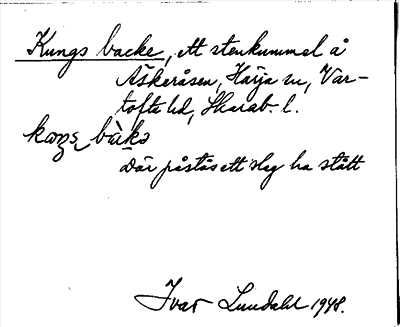 Kungs backe, ett stenkummel å
Åskeråsen, Härja sn, Var-
tofta hd, Skarab. l.
kaŋs bàkə
där påstås ett slag ha stått
Ivar Lundahl 1948.